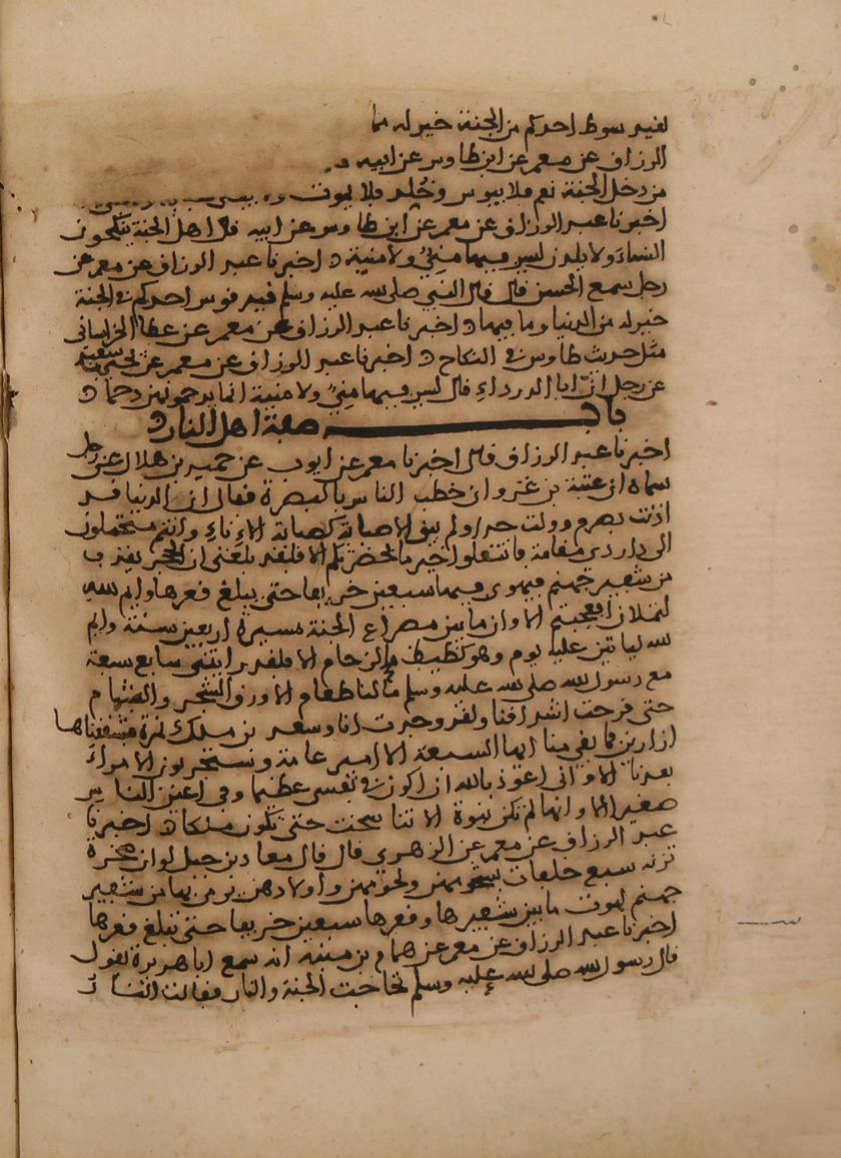 لقيد سوط احدكم من الجنة خير له مما
الرزاق عن معمر عن ابن طاوس عن ابيه
من دخل الجنة نعم فلا يبوس وخلد فلا يموت
اخبرنا عبد الرزاق عن معمر عن ابن طاوس عن ابيه قال اهل الجنة ينكحون
النساء ولا يلدن ليس فيها مني ولا منية اخبرنا عبد الرزاق عن معمر عن
رجل سمع الحسن قال قال النبي صلى الله عليه وسلم قيد قوس احدكم في الجنة
خير له من الدنيا وما فيها اخبرنا عبد الرزاق عن معمر عن عطا الخراساني
مثل حديث طاوس في النكاح اخبرنا عبد الرزاق عن معمر عن
عن رجل ان ابا الدرداء قال ليس فيها مني ولا منية انما يدحمونهن دحما
باب صفة اهل النار
اخبرنا عبد الرزاق قال اخبرنا معمر عن ايوب عن حميد بن هلال عن رجل
سماه ان عتبة بن غزوان خطب الناس بالبصرة فقال ان الدنيا قد
اذنت بصرم وولت حذاء ولم يبق الا صبابة كصبابة الاناء وانتم منتقلون
الى دار ذي مقامة فانتقلوا خير ما بحضرتكم الا فلقد بلغني ان الحجر يقذف
من شفير جهنم فيهوي فيها سبعين خريفا حتى يبلغ قعرها وايم الله
لتملان افعجبتم الا وان ما بين مصراع الجنة مسيرة اربعين سنة وايم
الله لياتين عليه يوم وهو كظيظ من الزحام الا فلقد رايتني سابع سبعة
مع رسول الله صلى الله عليه وسلم ما لنا طعام الا ورق الشجر والبشام
حتى قرحت اشداقنا ولقد وجدت انا وسعد بن ملك نمرة فشققناها
ازارين فما بقي منا ايها السبعة الا امير عامة وستجربون الامراء
بعدنا الا واني اعوذ بالله ان اكون في نفسي عظيما وفي اعين الناس
صغيرا الا وانها لم تكن نبوة الا تناسخت حتى تكون ملكا اخبرنا
عبد الرزاق عن معمر عن الزهري قال قال معاذ بن جبل لو ان صخرة
تزنه سبع خلفات بشحومهن ولحومهن واولادهن يرمى بها من شفير
جهنم لهوت ما بين شفيرها وقعرها سبعين خريفا حتى تبلغ قعرها
اخبرنا عبد الرزاق عن معمر عن همام بن منبه انه سمع ابا هريرة يقول
قال رسول الله صلى الله عليه وسلم تحاجت الجنة والنار فقالت النار